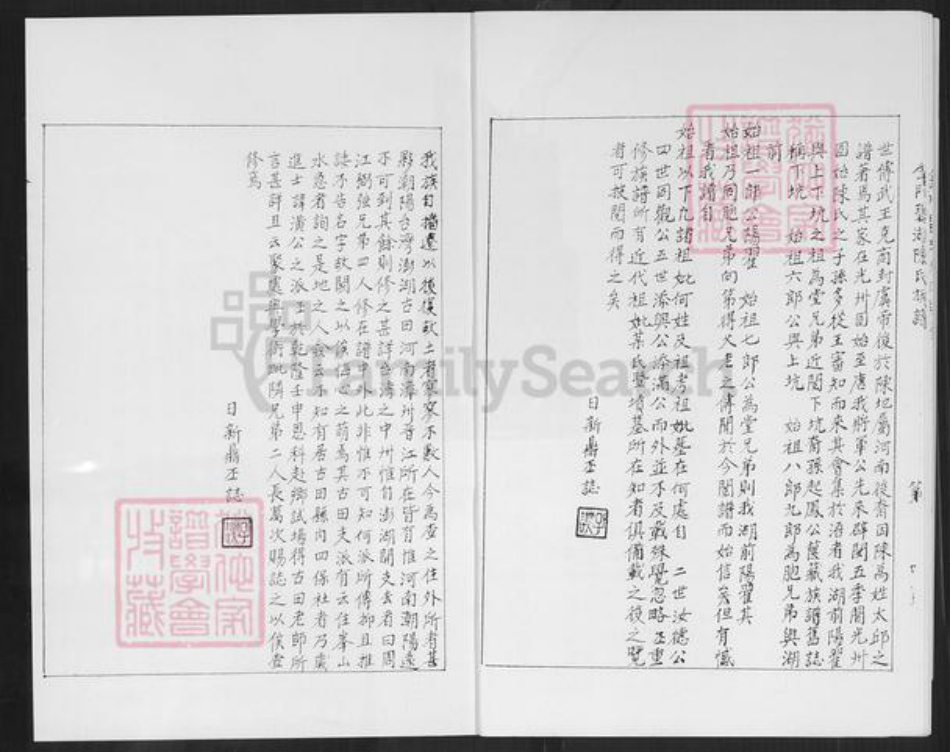 世傳武王克商封虞帝後於陳地屬河南後裔因陳為姓太邱之
譜者為其家在光州固始至唐我將軍公先來辟閩五季間光州
固始陳氏之子孫多從王審知而來其會集於浯者我湖前陽翟
與上下坑之祖為堂兄弟近閱下坑裔孫起鳳公蔭藏族譜舊誌
稱下坑 始祖六郎公與上坑 始祖八郎九郎為胞兄弟與湖
前
始祖一郎公陽翟 始祖七郎公為堂兄弟則我湖前陽翟其
始祖乃同胞兄弟向第得父老之傳聞於今閱譜而始信矣但有憾
者我譜自
始祖以下九諸祖妣何姓及祖考祖妣墓在何處自 二世汝德公
四世同觀公五世添興公添滿公而外並不及載殊覺忽略丕重
修族譜所有近代祖妣某氏暨墳墓所在知者俱備載之後之覽
者可披閱而得之矣
日新鼎丕誌
我族自播遷以後復故土者寥寥不數人今為查之住外所有甚
夥潮陽台灣澎湖古田河南漳州晉江所在皆有惟河南潮陽遠
不可到其餘則修之甚詳台灣之中州惟自澎湖開支去者曰周
江弼強兄弟四人修在譜中外此非惟不可知何派所傳抑且推
諉不告名字故闕之以俟仁心之萌焉其古田支派有云住峯山
水急者詢之是地之人僉云不知有居古田縣內四保社者乃震
進士諱潢公之派丕於乾隆壬申恩科赴鄉試場得古田老師所
言甚詳且云聚處與學衙毗隣兄弟二人長萬次賜誌之以俟查
修焉
日新鼎丕誌
FamilySearch